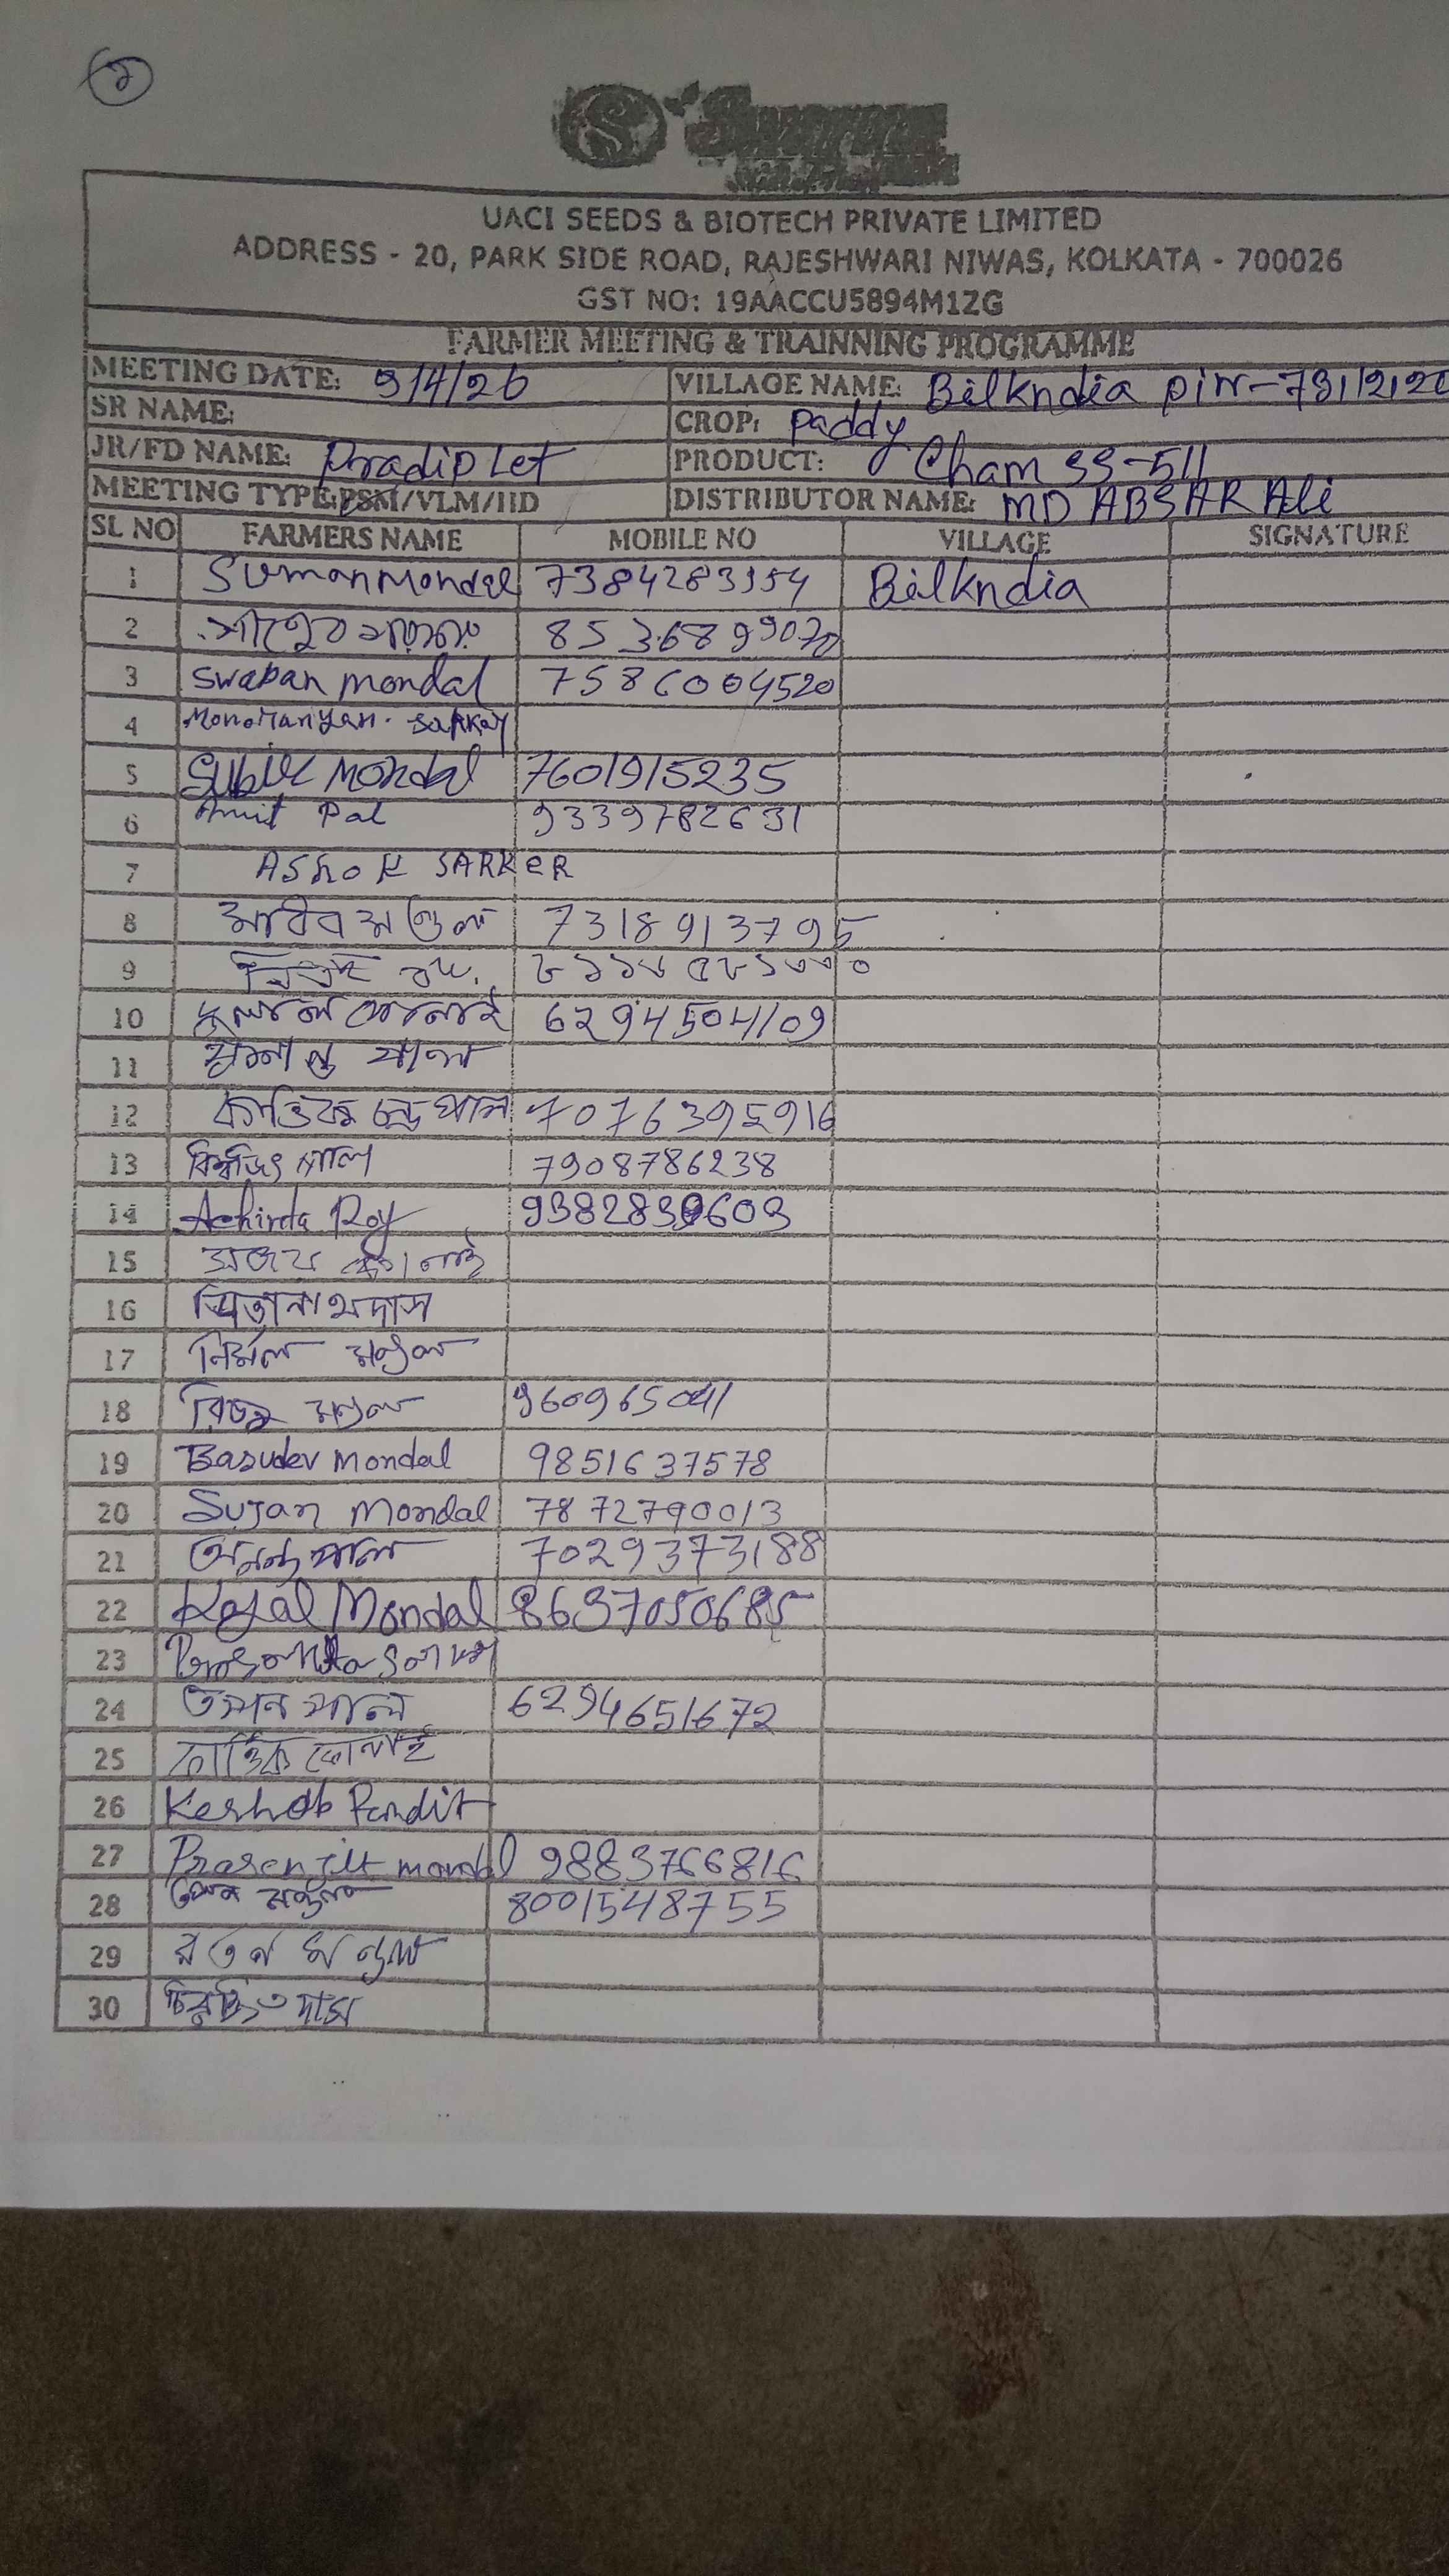 2
UACI SEEDS & BIOTECH PRIVATE LIMITED
ADDRESS - 20, PARK SIDE ROAD, RAJESHWARI NIWAS, KOLKATA - 700026
GST NO: 19AACCU5894M1ZG
FARMER MEETING & TRAINNING PROGRAMME
MEETING DATE: 9/4/26 VILLAGE NAME: Bilkndia pin-731212
SR NAME: CROP: Paddy
JR/FD NAME: Pradip Let PRODUCT: Cham SS-511
MEETING TYPE: PSM/VLM/IID DISTRIBUTOR NAME: MD ABSAR Ali
SL NO FARMERS NAME MOBILE NO VILLAGE SIGNATURE
1 Suman Mondal 7384283954 Bilkndia
2 8536899070
3 Swapan mondal 7586004520
4 Monoranjan. Sarkar
5 Subir Mondal 7601915235
6 Amit Pal 9339782631
7 ASHOK SARKER
8 মণ্ডল 7318913795
9
10 দুলাল কোনাই 6294504109
11 সুশান্ত পাল
12 কার্ত্তিক চন্দ্র পাল 7076395916
13 বিশ্বজিৎ পাল 7908786238
14 Achinta Roy 9382839603
15 অজয় কোনাই
16 দাস
17 নির্মল মণ্ডল
18 মণ্ডল 960965041
19 Basudev Mondal 9851637578
20 Sujan Mondal 7872790013
21 অনন্ত পাল 7029373188
22 Kajal Mondal 8637050685
23 Prosonta
24 তপন পাল 6294651672
25 কার্ত্তিক কোনাই
26 Keshab Pandit
27 Prasenjit mondal 9883766816
28 মণ্ডল 8001548755
29 রতন মণ্ডল
30 চিরঞ্জিত দাস